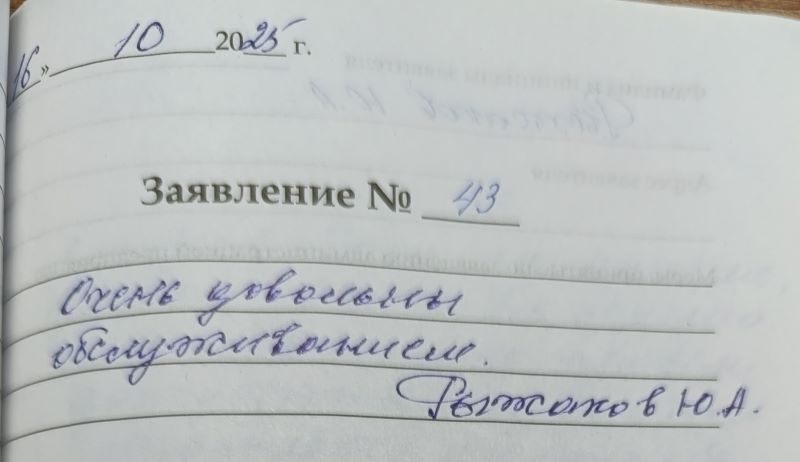 16 » 10 2025 г.
Заявление № 43
Очень довольны
обслуживанием.
Рыжаков Ю.А.